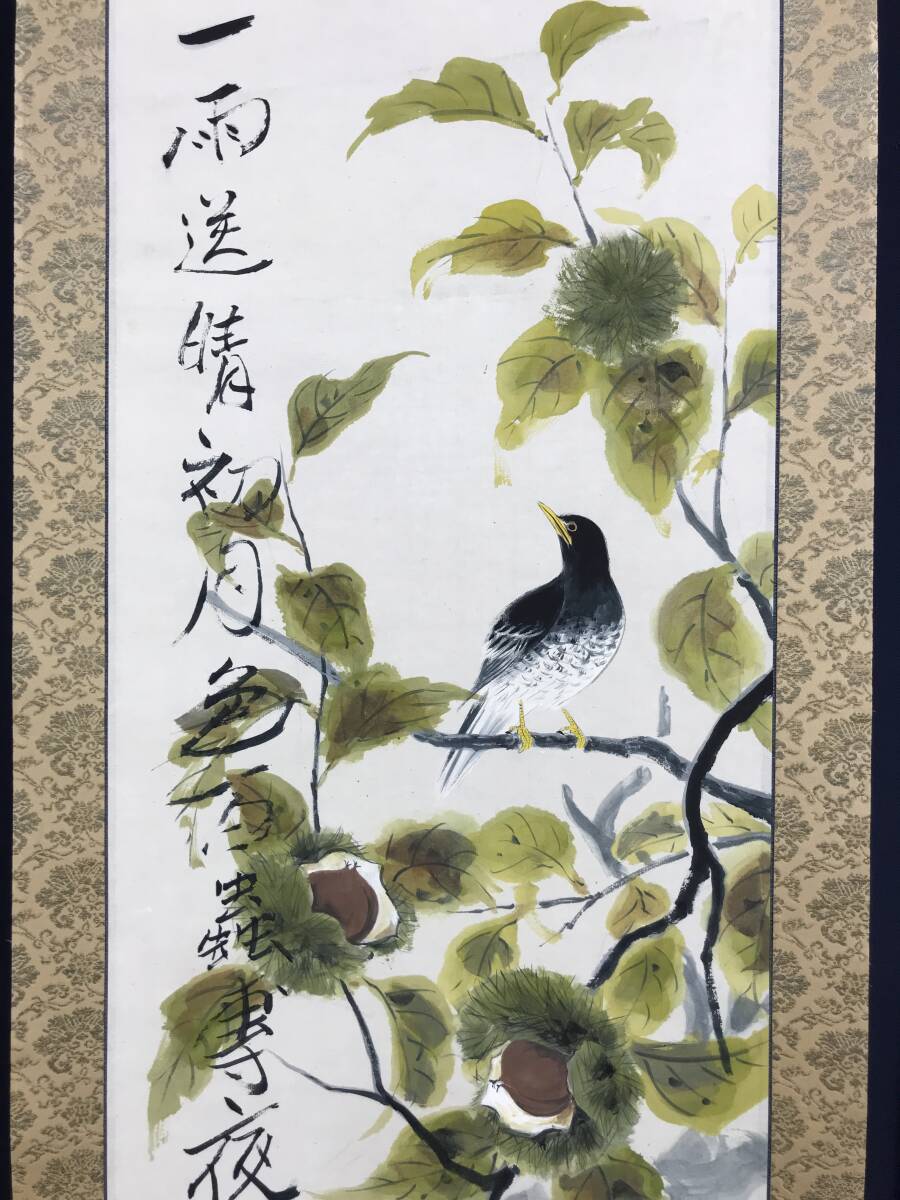 一雨送晴初月色百蟲専夜